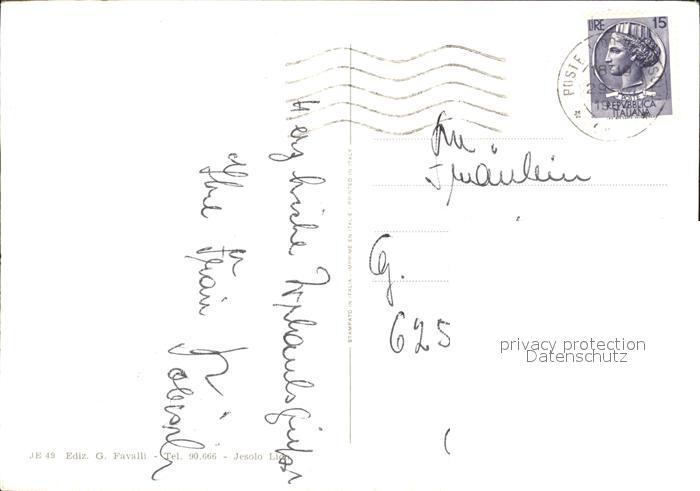 LIRE 15
POSTE
REPVBBLICA
ITALIANA
An
Fräulein
625
Herzliche Urlaubsgrüße
Ihre
STAMPATO IN ITALIA - IMPRIMÉ EN ITALIE - PRINTED IN ITALY
privacy protection
Datenschutz
JE 49 Ediz. G. Favalli - Tel. 90.666 - Jesolo Lido